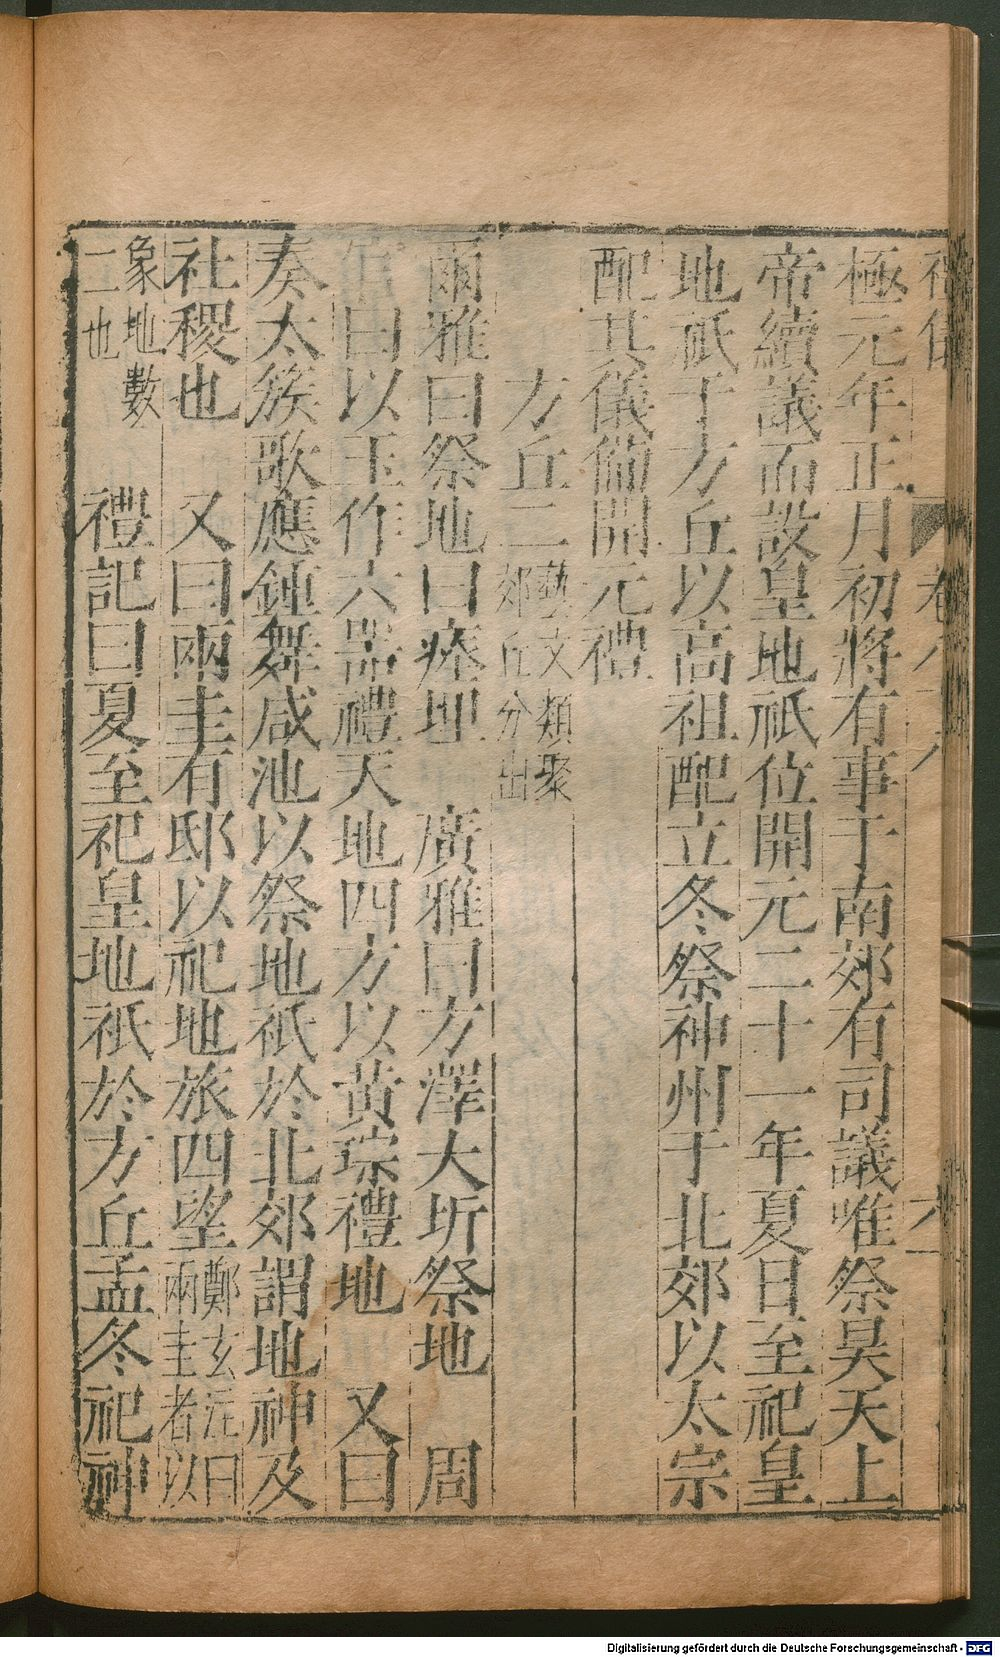 極元年正月初將有事于南郊有司議唯祭昊天上
帝續議而設皇地祇位開元二十一年夏日至祀皇
地祇于方丘以高祖配立冬祭神州于北郊以太宗
配其儀備開元禮
方丘二 藝文類聚
郊丘分出
爾雅曰祭地曰瘞埋 廣雅曰方澤大圻祭地 周
官曰以玉作六器禮天地四方以黃琮禮地 又曰
奏太簇歌應鍾舞咸池以祭地祇於北郊謂地神及
社稷也 又曰兩圭有邸以祀地旅四望 鄭玄注曰
兩圭者以
象地數
二也
禮記曰夏至祀皇地祇於方丘孟冬祀神
Digitalisierung gefördert durch die Deutsche Forschungsgemeinschaft - DFG